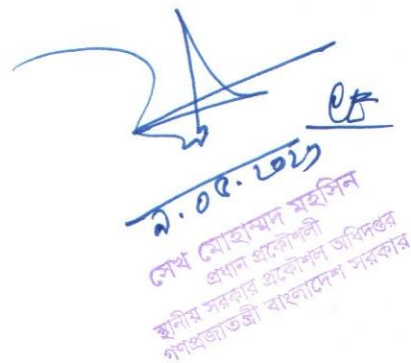 সেখ মোহাম্মদ মহসিন
প্রধান প্রকৌশলী
স্থানীয় সরকার প্রকৌশল অধিদপ্তর
গণপ্রজাতন্ত্রী বাংলাদেশ সরকার